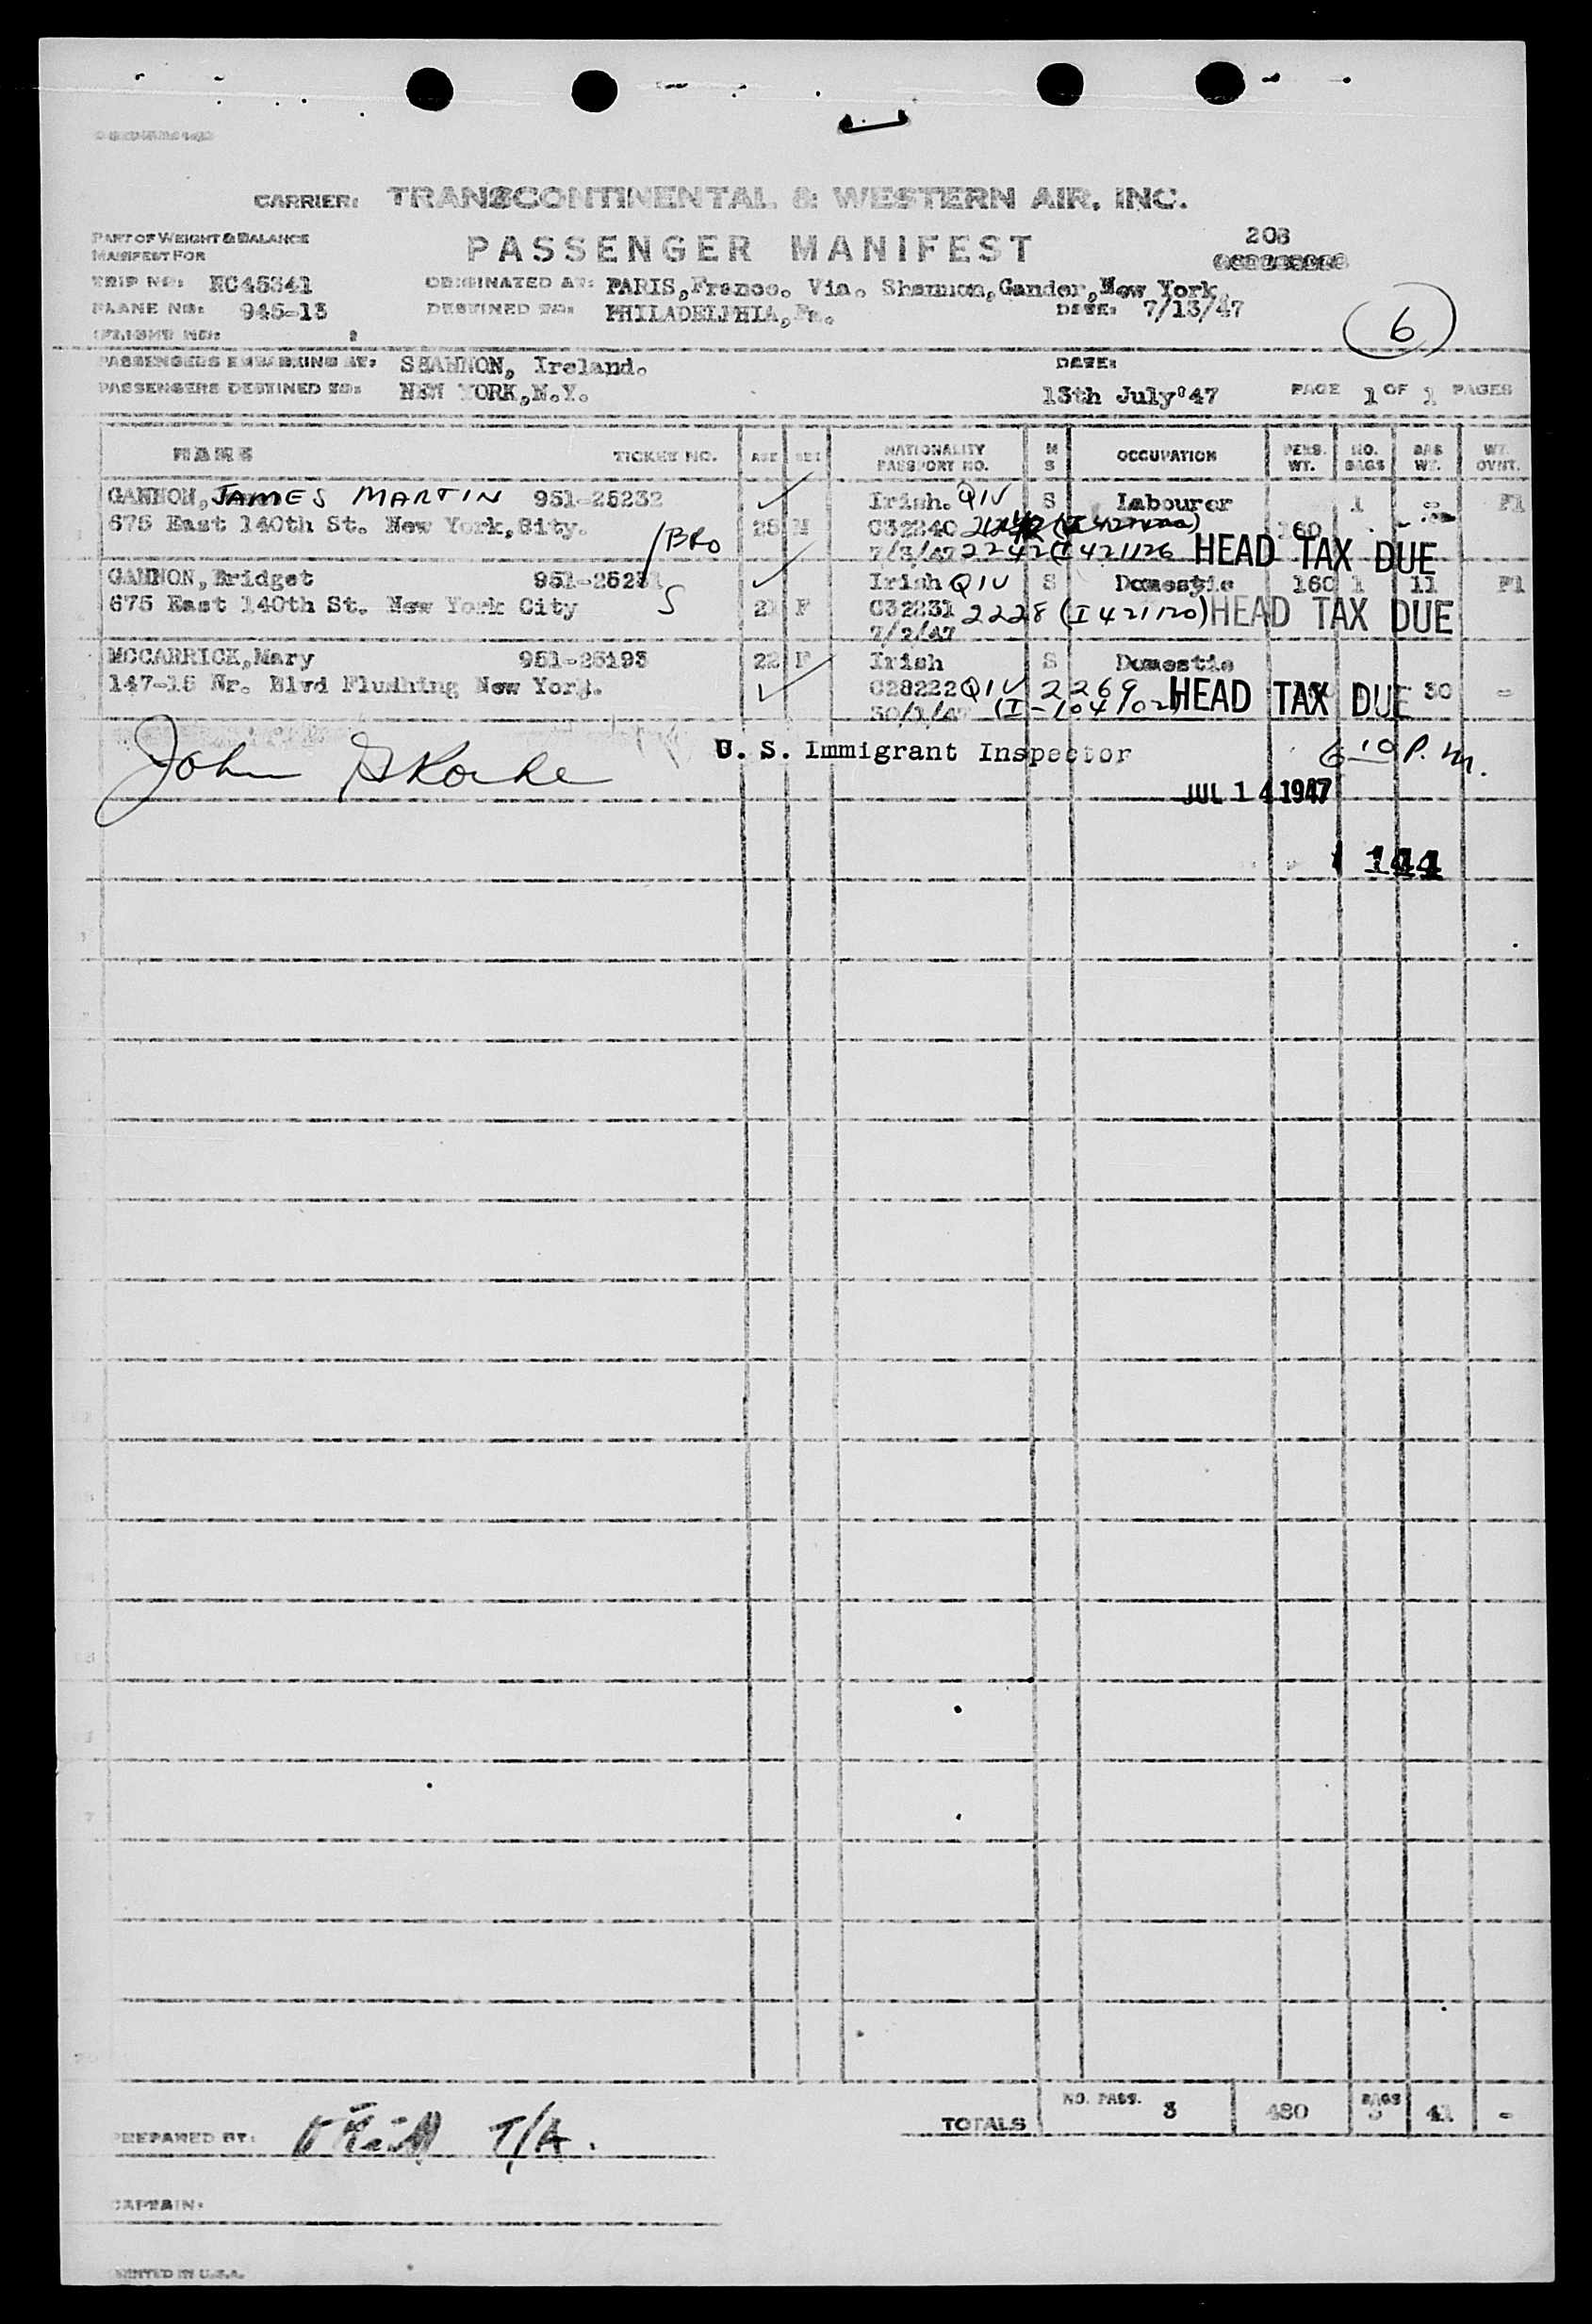 CARRIER: TRANSCONTINENTAL & WESTERN AIR, INC.
PART OF WEIGHT & BALANCE
MANIFEST FOR
PASSENGER MANIFEST
208
TRIP NO: NC45341 ORIGINATED AT: PARIS, France. Via. Shannon, Gander, New York
PLANE NO: 945-13 DESTINED TO: PHILADELPHIA, Pa. DATE: 7/13/47
(FLIGHT NO:
6
PASSENGERS EMBARKING AT: SHANNON, Ireland. DATE:
PASSENGERS DESTINED TO: NEW YORK, N.Y. 13th July'47 PAGE 1 OF 1 PAGES
NAME TICKET NO. AGE SEX NATIONALITY PASSPORT NO. M S OCCUPATION PERS. WT. NO. BAGS BAG WT. WT. OVNT.
GANNON, JAMES MARTIN 951-25232 Irish. QIV S Labourer 1 - F1
675 East 140th St. New York, City. 25 M C32240 160
/BRO 7/3/47 2242 (I 421126 HEAD TAX DUE
GANNON, Bridget 951-25231 Irish QIV S Domestic 160 1 11 F1
675 East 140th St. New York City S 21 F C32231 2228 (I 421120) HEAD TAX DUE
7/2/47
MCCARRICK, Mary 951-25193 22 F Irish S Domestic
147-15 Nr. Blvd Flushing New York. C28222 QIV 2269 HEAD TAX DUE 30 -
30/1/47
John U. S. Immigrant Inspector 6 10 P.M.
JUL 14 1947
144
TOTALS NO. PASS. 3 480 BAGS 3 41 -
PREPARED BY: T/A.
CAPTAIN:
PRINTED IN U.S.A.